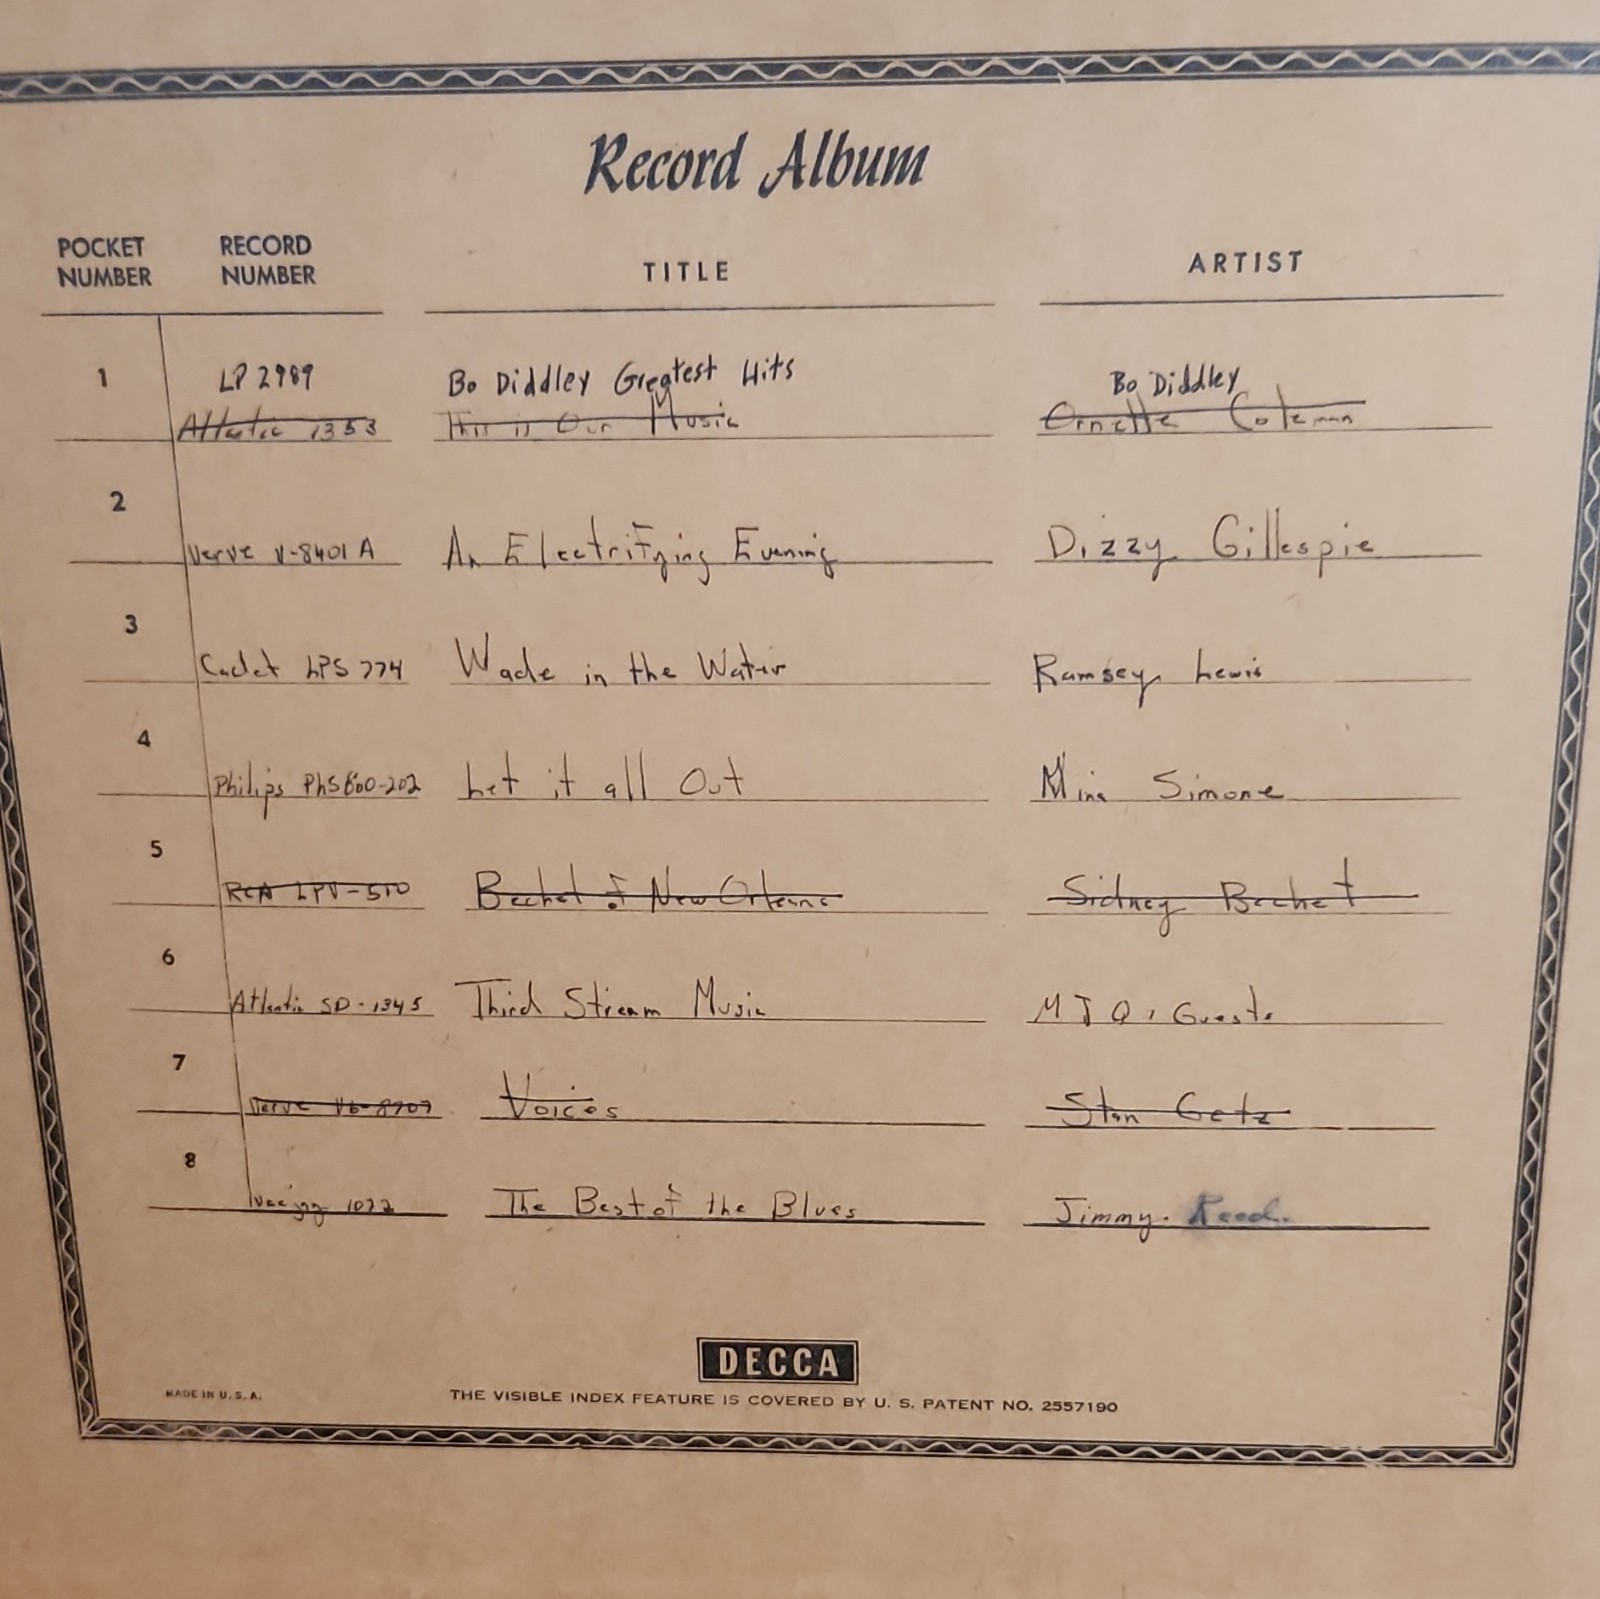 Record Album
POCKET NUMBER RECORD NUMBER TITLE ARTIST
1 LP 2989 Bo Diddley Greatest Hits Bo Diddley
Atlantic 1353 This is Our Music Ornette Coleman
2 Verve V-8401 A An Electrifying Evening Dizzy Gillespie
3 Cadet LPS 774 Wade in the Water Ramsey Lewis
4 Philips PhS 600-202 Let it all Out Nina Simone
5 RCA LPV-510 Bechet of New Orleans Sidney Bechet
6 Atlantic SD-1345 Third Stream Music MJQ, Guests
7 Verve V6-8707 Voices Stan Getz
8 Veejay 1072 The Best of the Blues Jimmy Reed
DECCA
MADE IN U.S.A. THE VISIBLE INDEX FEATURE IS COVERED BY U. S. PATENT NO. 2557190